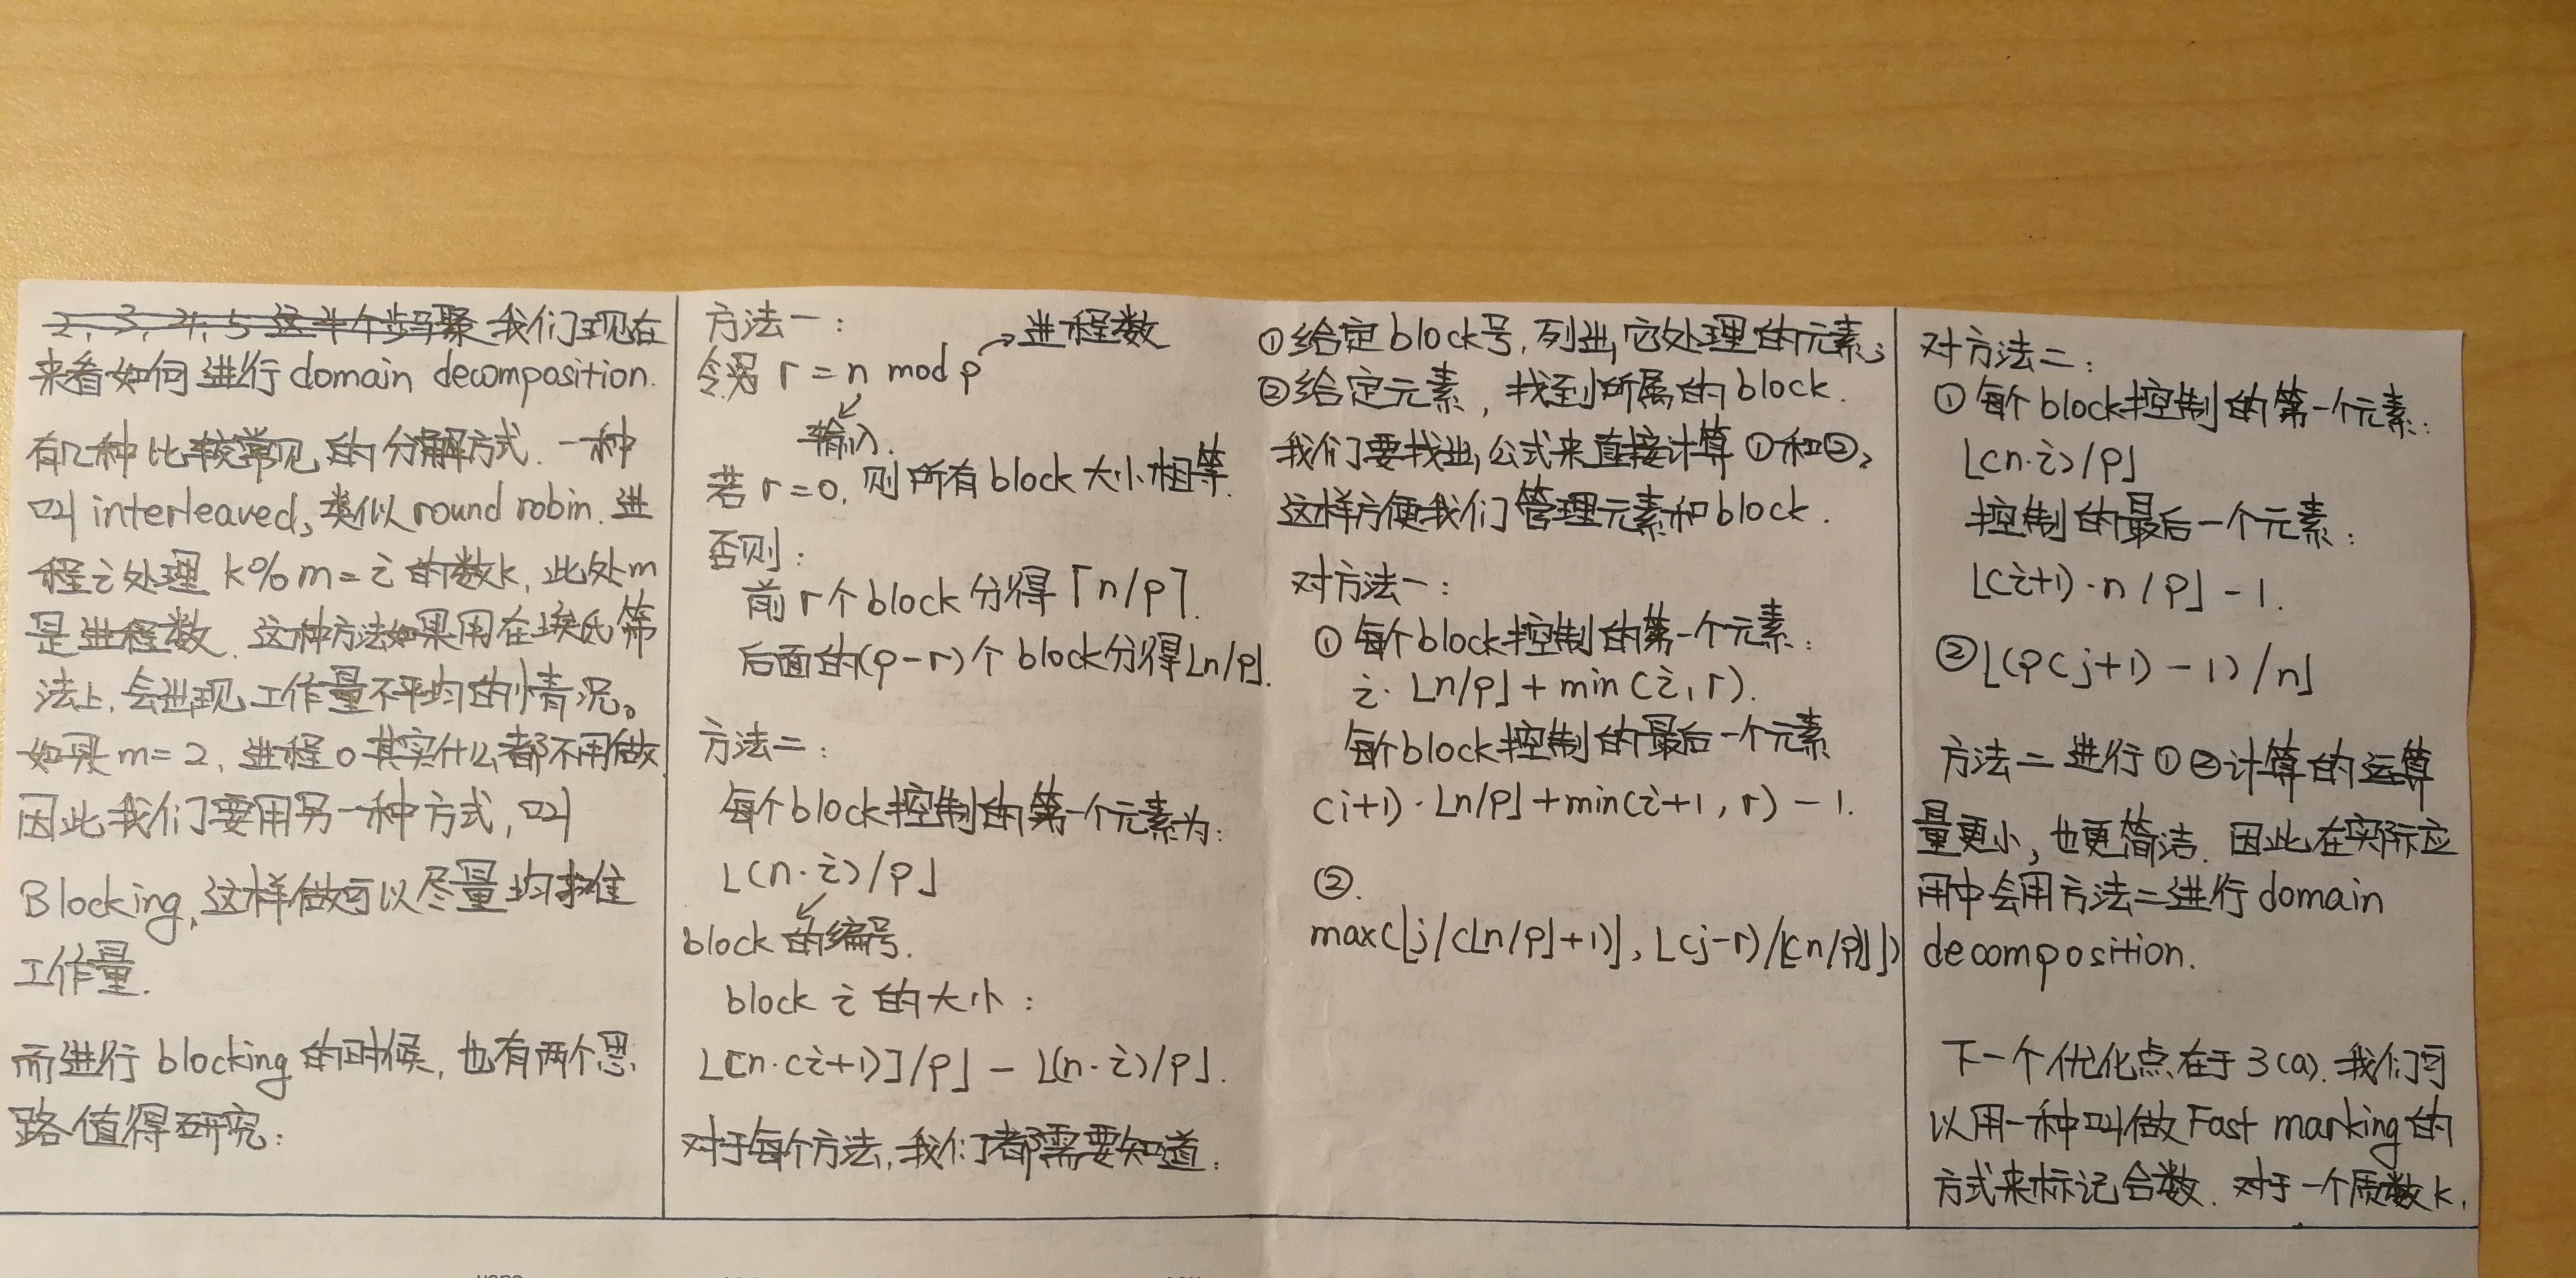 2, 3, 4, 5 这半个步骤 我们现在
来看如何进行 domain decomposition.
有几种比较常见的分解方式. 一种
叫 interleaved, 类似 round robin. 进
程 i 处理 k%m = i 的数k, 此处m
是进程数. 这种方法如果用在埃氏筛
法上, 会出现工作量不平均的情况。
如果 m=2, 进程0其实什么都不用做
因此我们要用另一种方式, 叫
Blocking, 这样做可以尽量均摊
工作量.
而进行 blocking 的时候, 也有两个思
路值得研究:
方法一:
→进程数
r = n mod p
输入.
若 r=0, 则所有 block 大小相等.
否则:
前 r 个 block 分得 ⌈n/p⌉.
后面的(p-r)个 block分得⌊n/p⌋.
方法二:
每个block控制的第一个元素为:
⌊(n·i)/p⌋
block 的编号.
block i 的大小:
⌊[n·(i+1)]/p⌋ - ⌊(n·i)/p⌋.
对于每个方法, 我们都需要知道:
①给定block号, 列出它处理的元素;
②给定元素, 找到所属的block.
我们要找出公式来直接计算①和②,
这样方便我们管理元素和block.
对方法一:
①每个block控制的第一个元素:
i·⌊n/p⌋+min(i,r).
每个block控制的最后一个元素
(i+1)·⌊n/p⌋+min(i+1, r) - 1.
②.
max(⌊j/(⌊n/p⌋+1)⌋, ⌊(j-r)/⌊n/p⌋⌋)
对方法二:
①每个block控制的第一个元素:
⌊(n·i)/p⌋
控制的最后一个元素:
⌊(i+1)·n/p⌋ - 1.
②⌊(p(j+1)-1)/n⌋
方法二进行①②计算的运算
量更小, 也更简洁. 因此在实际应
用中会用方法二进行domain
decomposition.
下一个优化点在于3(a). 我们可
以用一种叫做 Fast marking的
方式来标记合数. 对于一个质数k,